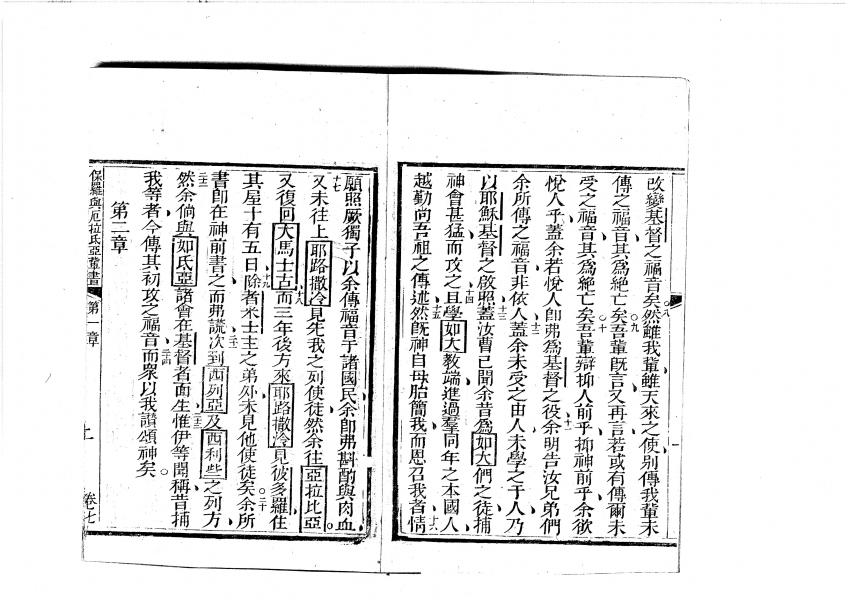 改變基督之福音矣。八然雖我輩雖天來之使別傳我輩未
傳之福音其為絕亡矣。九吾輩既言又再言若或有傳爾未
受之福音其為絕亡矣。十吾輩辯抑人前乎抑神前乎余欲
悅人乎蓋余若悅人即弗為基督之役十一余明告汝兄弟們
余所傳之福音非依人十二蓋余未受之由人未學之于人乃
以耶穌基督之啟照十三蓋汝曹已聞余昔為如大們之徒捕
神會甚猛而攻之十四且學如大教端進過羣同年之本國人
越勤尚吾祖之傳述十五然既神自母胎簡我而恩召我者十六情
願照厥獨子以余傳福音于諸國民余即弗斟酌與肉血
十七又未往上耶路撒冷見先我之列使徒然余往亞拉比亞
又復回大馬士古十八而三年後方來耶路撒冷見彼多羅住
其屋十有五日十九除者米士主之弟外未見他使徒矣。二十余所
書即在神前書之而弗謊二一次到西列亞及西利些之列方
二二然余倘與如氏亞諸會在基督者面生二三惟伊等聞稱昔捕
我等者今傳其初攻之福音二四而眾以我讚頌神矣。
第二章
保羅與厄拉氏亞輩書 第一章 十一 卷七